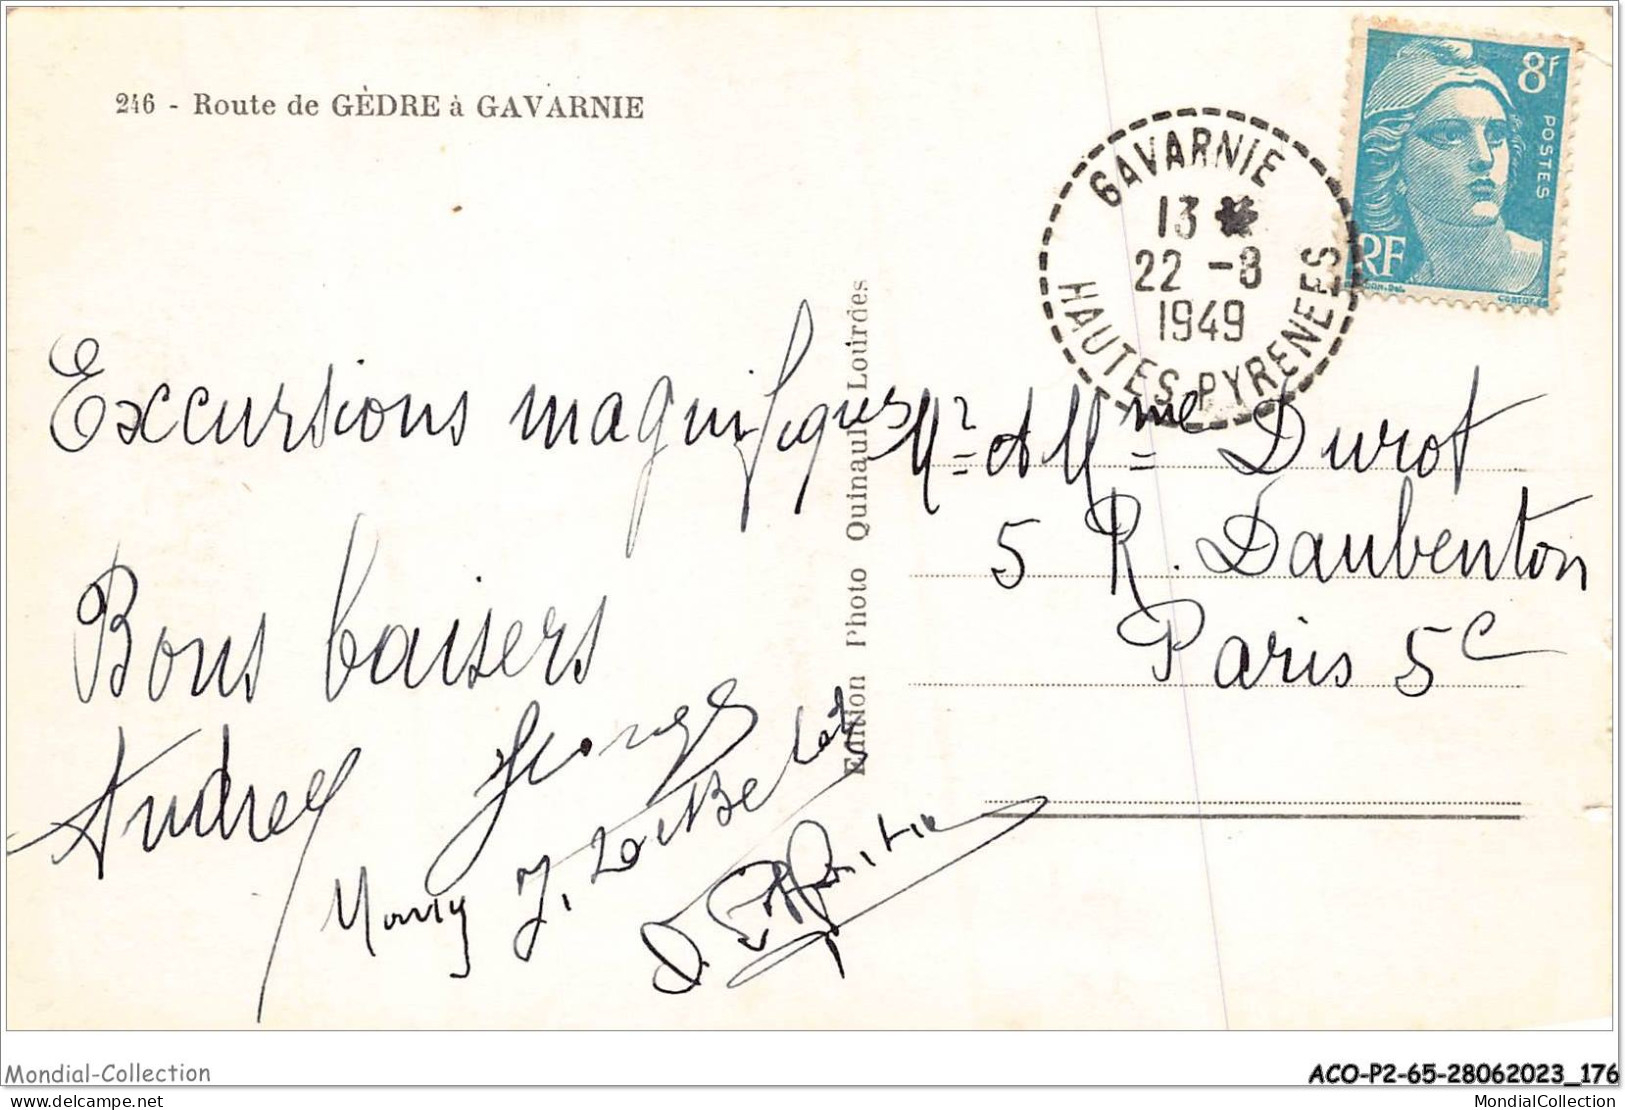 246 - Route de GÈDRE à GAVARNIE
8F
POSTES
RF
GAVARNIE
13 *
22 - 8
1949
HAUTES-PYRENEES
Excursions magnifiques
Bons baisers
Andrée Georges
Édition Photo Quinault Lourdes
Mr et Mme Durot
5 R. Daubenton
Paris 5e
Mondial-Collection
ACO-P2-65-28062023_176
delcampe.net
MondialCollection